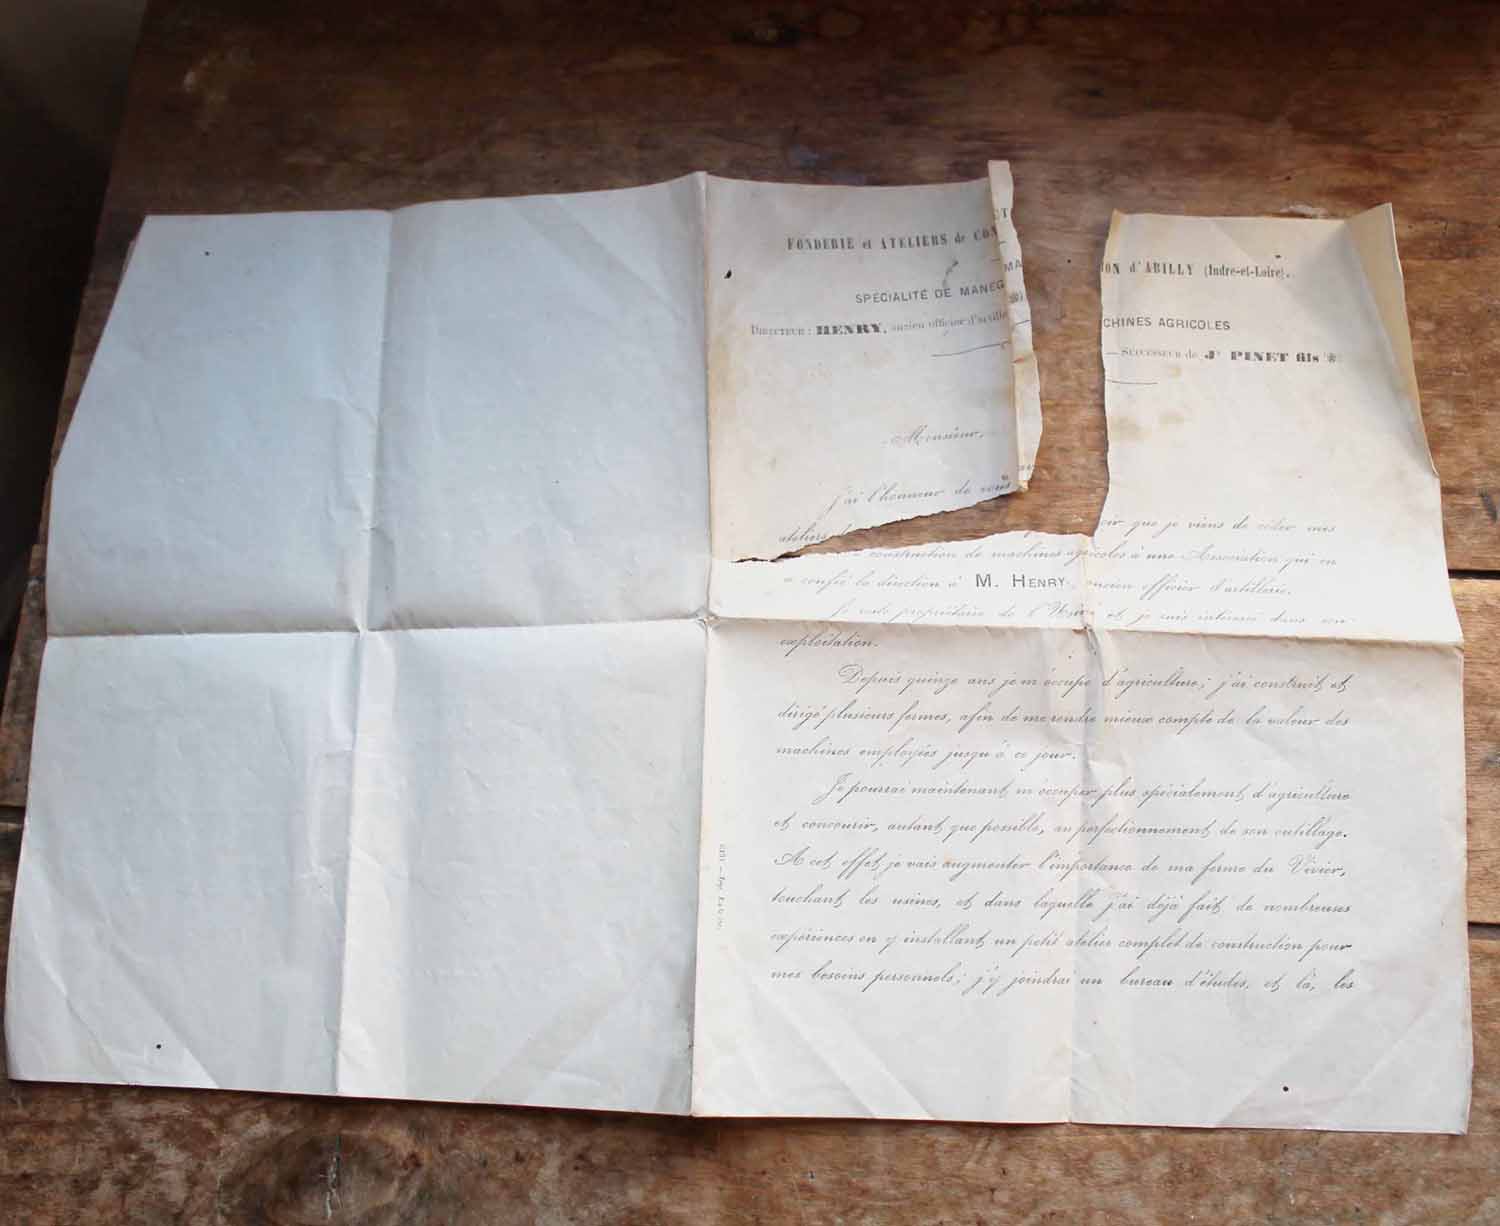 FONDERIE et ATELIERS de CONS T ION d'ABILLY (Indre-et-Loire).
SPÉCIALITÉ DE MANÈG MA CHINES AGRICOLES
DIRECTEUR : HENRY, ancien officier d'artille — SUCCESSEUR de Jh PINET fils
Monsieur,
J'ai l'honneur de vous oir que je viens de céder mes
ateliers de construction de machines agricoles à une Association qui en
a confié la direction à M. HENRY, ancien officier d'artillerie.
Je reste propriétaire de l'Usine et je suis intéressé dans son
exploitation.
Depuis quinze ans je m'occupe d'agriculture; j'ai construit et
dirigé plusieurs fermes, afin de me rendre mieux compte de la valeur des
machines employées jusqu'à ce jour.
Je pourrai maintenant m'occuper plus spécialement d'agriculture
et concourir, autant que possible, au perfectionnement de son outillage.
A cet effet je vais augmenter l'importance de ma ferme du Vivier,
touchant les usines, et dans laquelle j'ai déjà fait de nombreuses
expériences en y installant un petit atelier complet de construction pour
mes besoins personnels; j'y joindrai un bureau d'études, et là, les